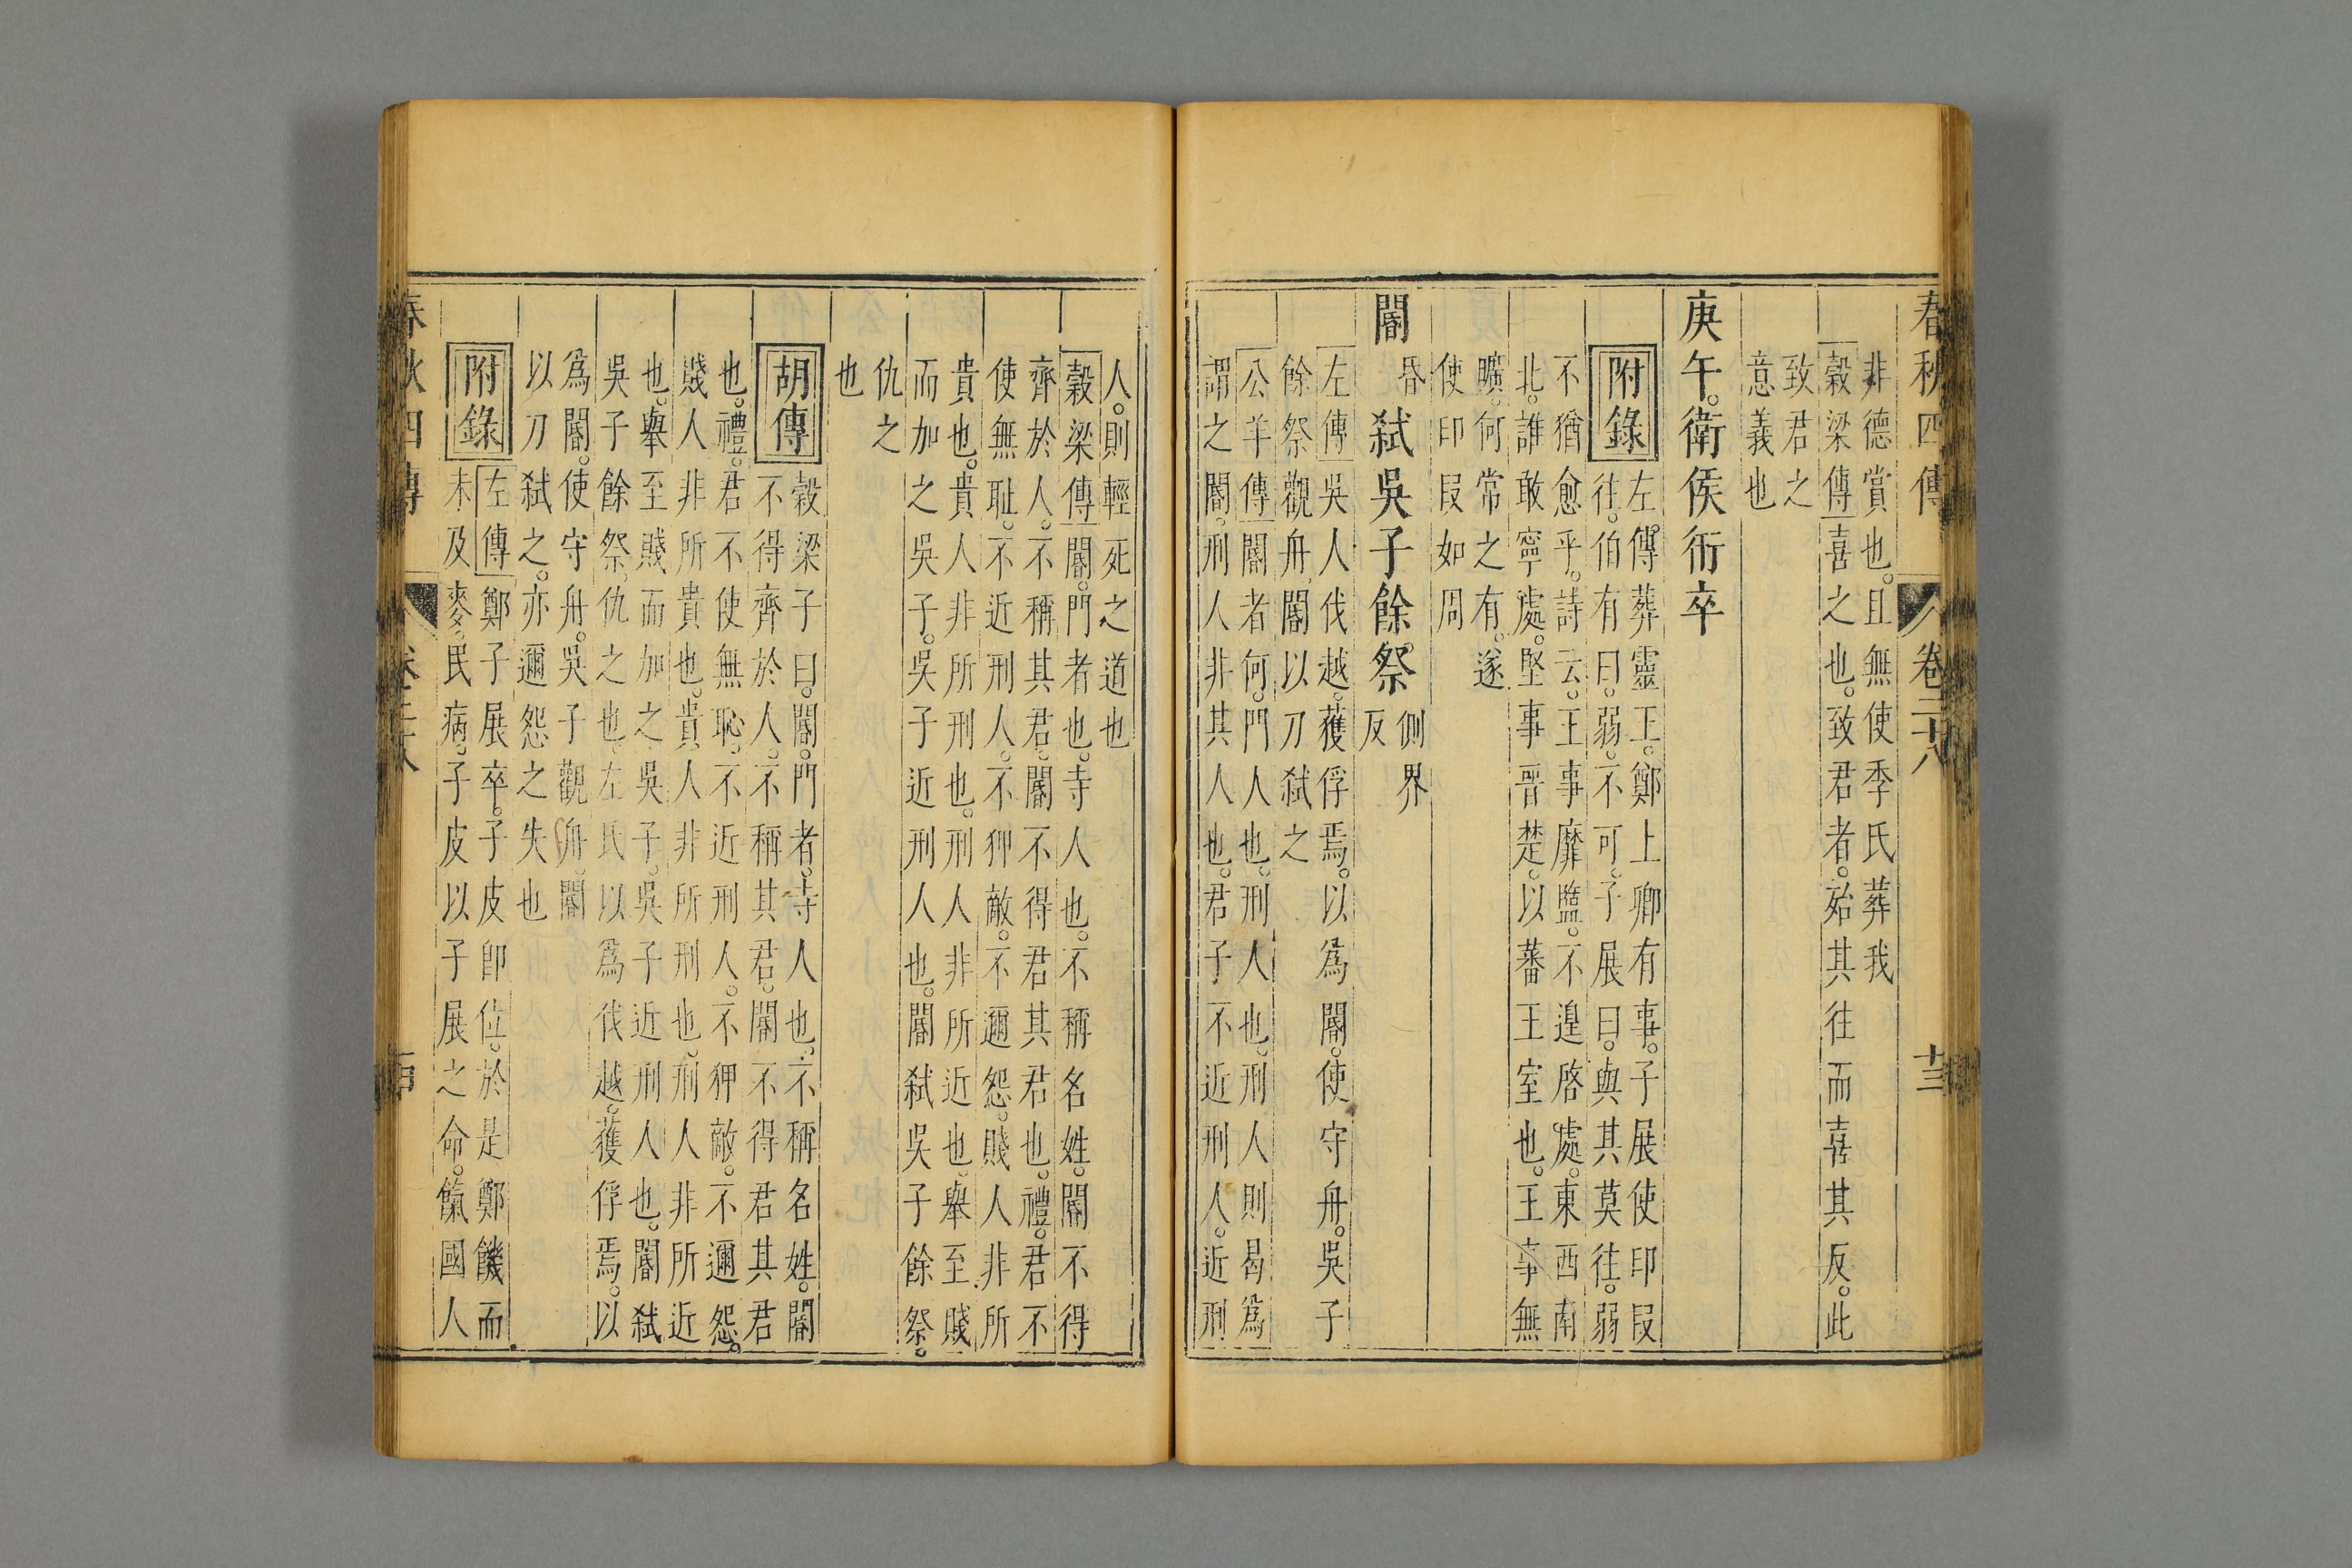 春秋四傳 卷二十八 廿三
非德賞也。且無使季氏葬我
穀梁傳喜之也。致君者。殆其往而喜其反。此
致君之
意義也
庚午。衛侯衎卒
附錄
左傳葬靈王。鄭上卿有事。子展使印段
往。伯有曰。弱。不可。子展曰。與其莫往。弱
不猶愈乎。詩云。王事靡盬。不遑啓處。東西南
北。誰敢寧處。堅事晉楚。以蕃王室也。王事無
曠。何常之有。遂
使印段如周
閽昏弑吳子餘祭側界
反
左傳吳人伐越。獲俘焉。以爲閽。使守舟。吳子
餘祭觀舟。閽以刀弑之
公羊傳閽者何。門人也。刑人也。刑人則曷爲
謂之閽。刑人非其人也。君子不近刑人。近刑
人。則輕死之道也
穀梁傳閽。門者也。寺人也。不稱名姓。閽不得
齊於人。不稱其君。閽不得君其君也。禮。君不
使無恥。不近刑人。不狎敵。不邇怨。賤人非所
貴也。貴人非所刑也。刑人非所近也。舉至賤
而加之吳子。吳子近刑人也。閽弑吳子餘祭。
仇之
也
胡傳
穀梁子曰。閽。門者。寺人也。不稱名姓。閽
不得齊於人。不稱其君。閽不得君其君
也。禮。君不使無恥。不近刑人。不狎敵。不邇怨。
賤人非所貴也。貴人非所刑也。刑人非所近
也。舉至賤而加之吳子。吳子近刑人也。閽弑
吳子餘祭。仇之也。左氏以爲伐越。獲俘焉。以
爲閽。使守舟。吳子觀舟。閽
以刀弑之。亦邇怨之失也
附錄
左傳鄭子展卒。子皮卽位。於是鄭饑。而
未及麥。民病。子皮以子展之命。餼國人
春秋四傳